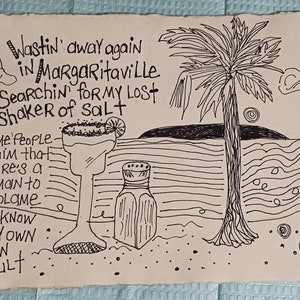 Wastin' away again
in Margaritaville
Searchin' for my lost
shaker of salt
people
that
man to
blame
know
own